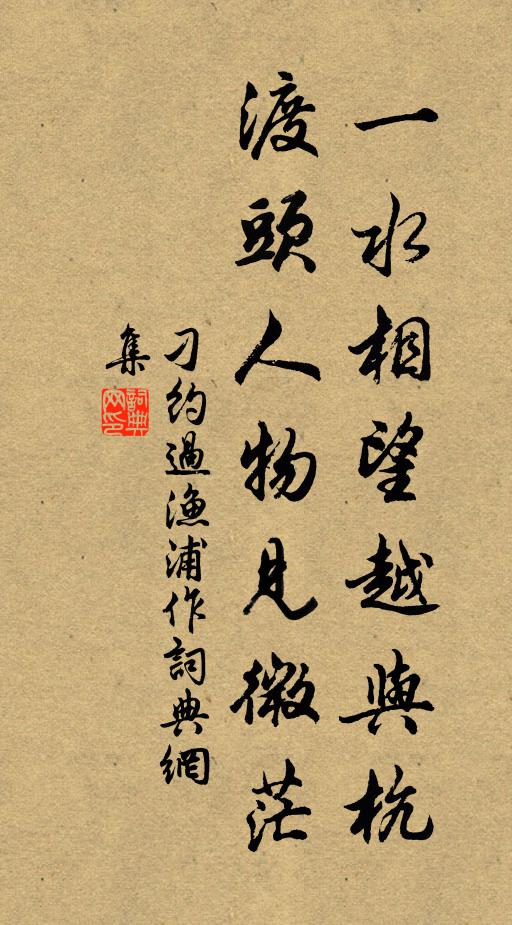 一水相望越與杭
渡頭人物見微茫
刁約過漁浦作詞典網
集
詞典
网印